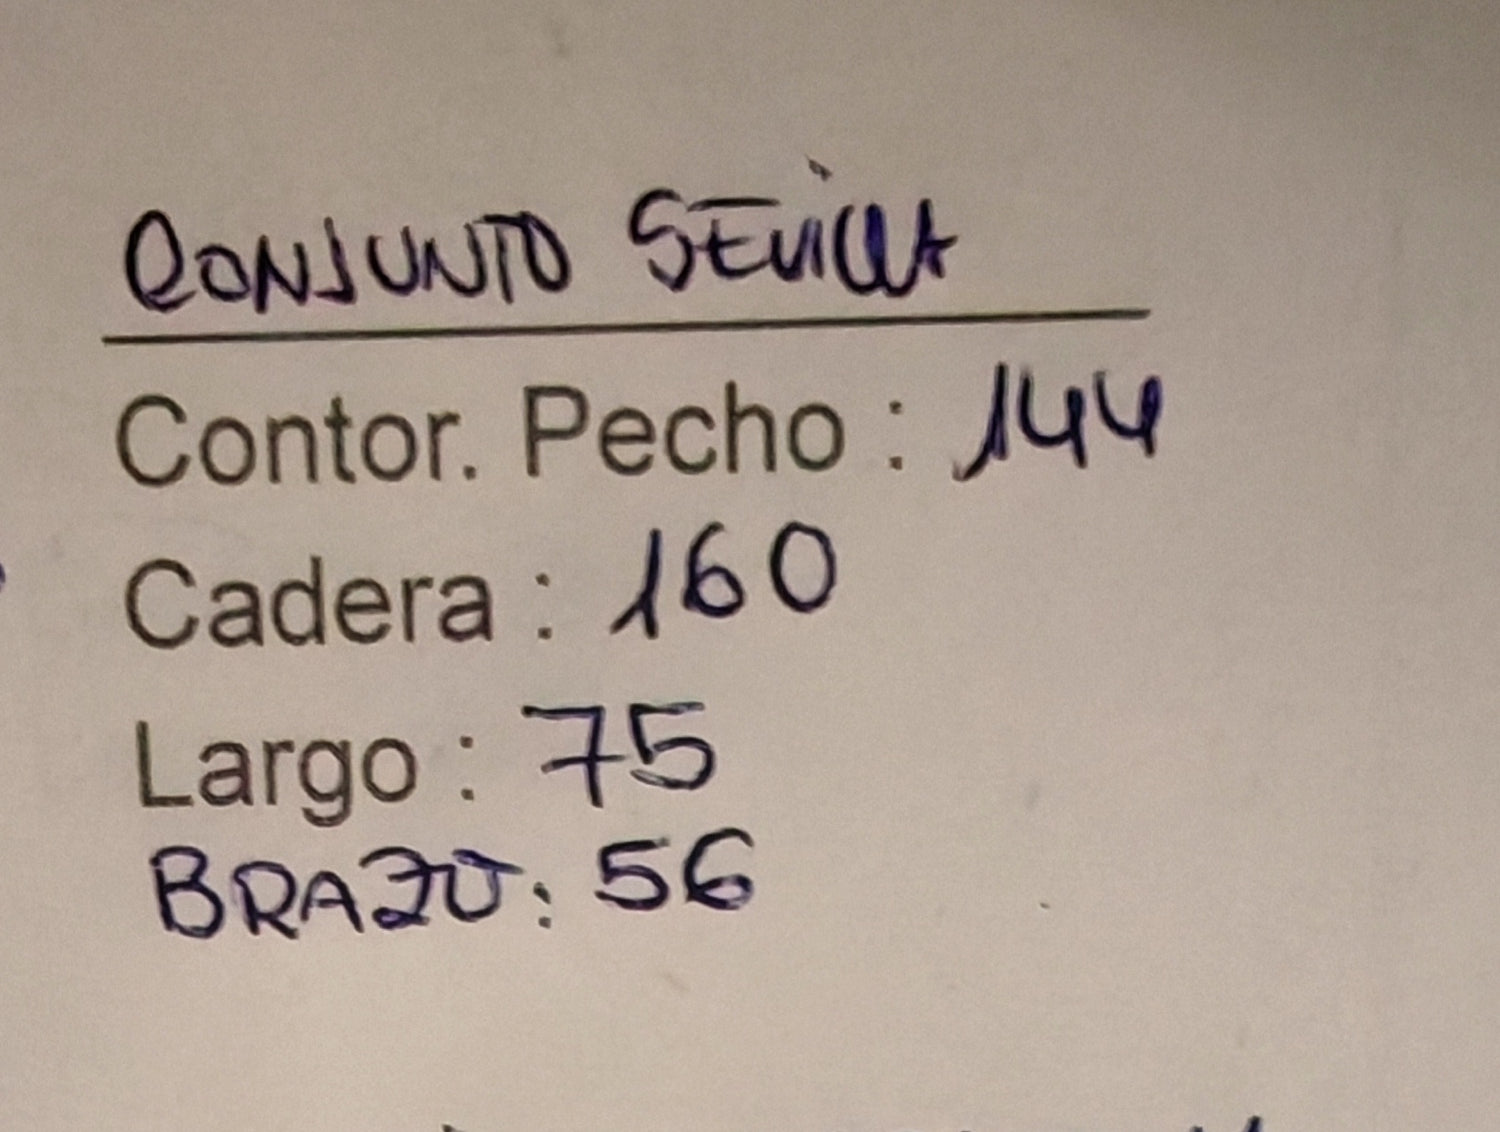 CONJUNTO SEVILLA
Contor. Pecho : 144
Cadera : 160
Largo : 75
BRAZO: 56